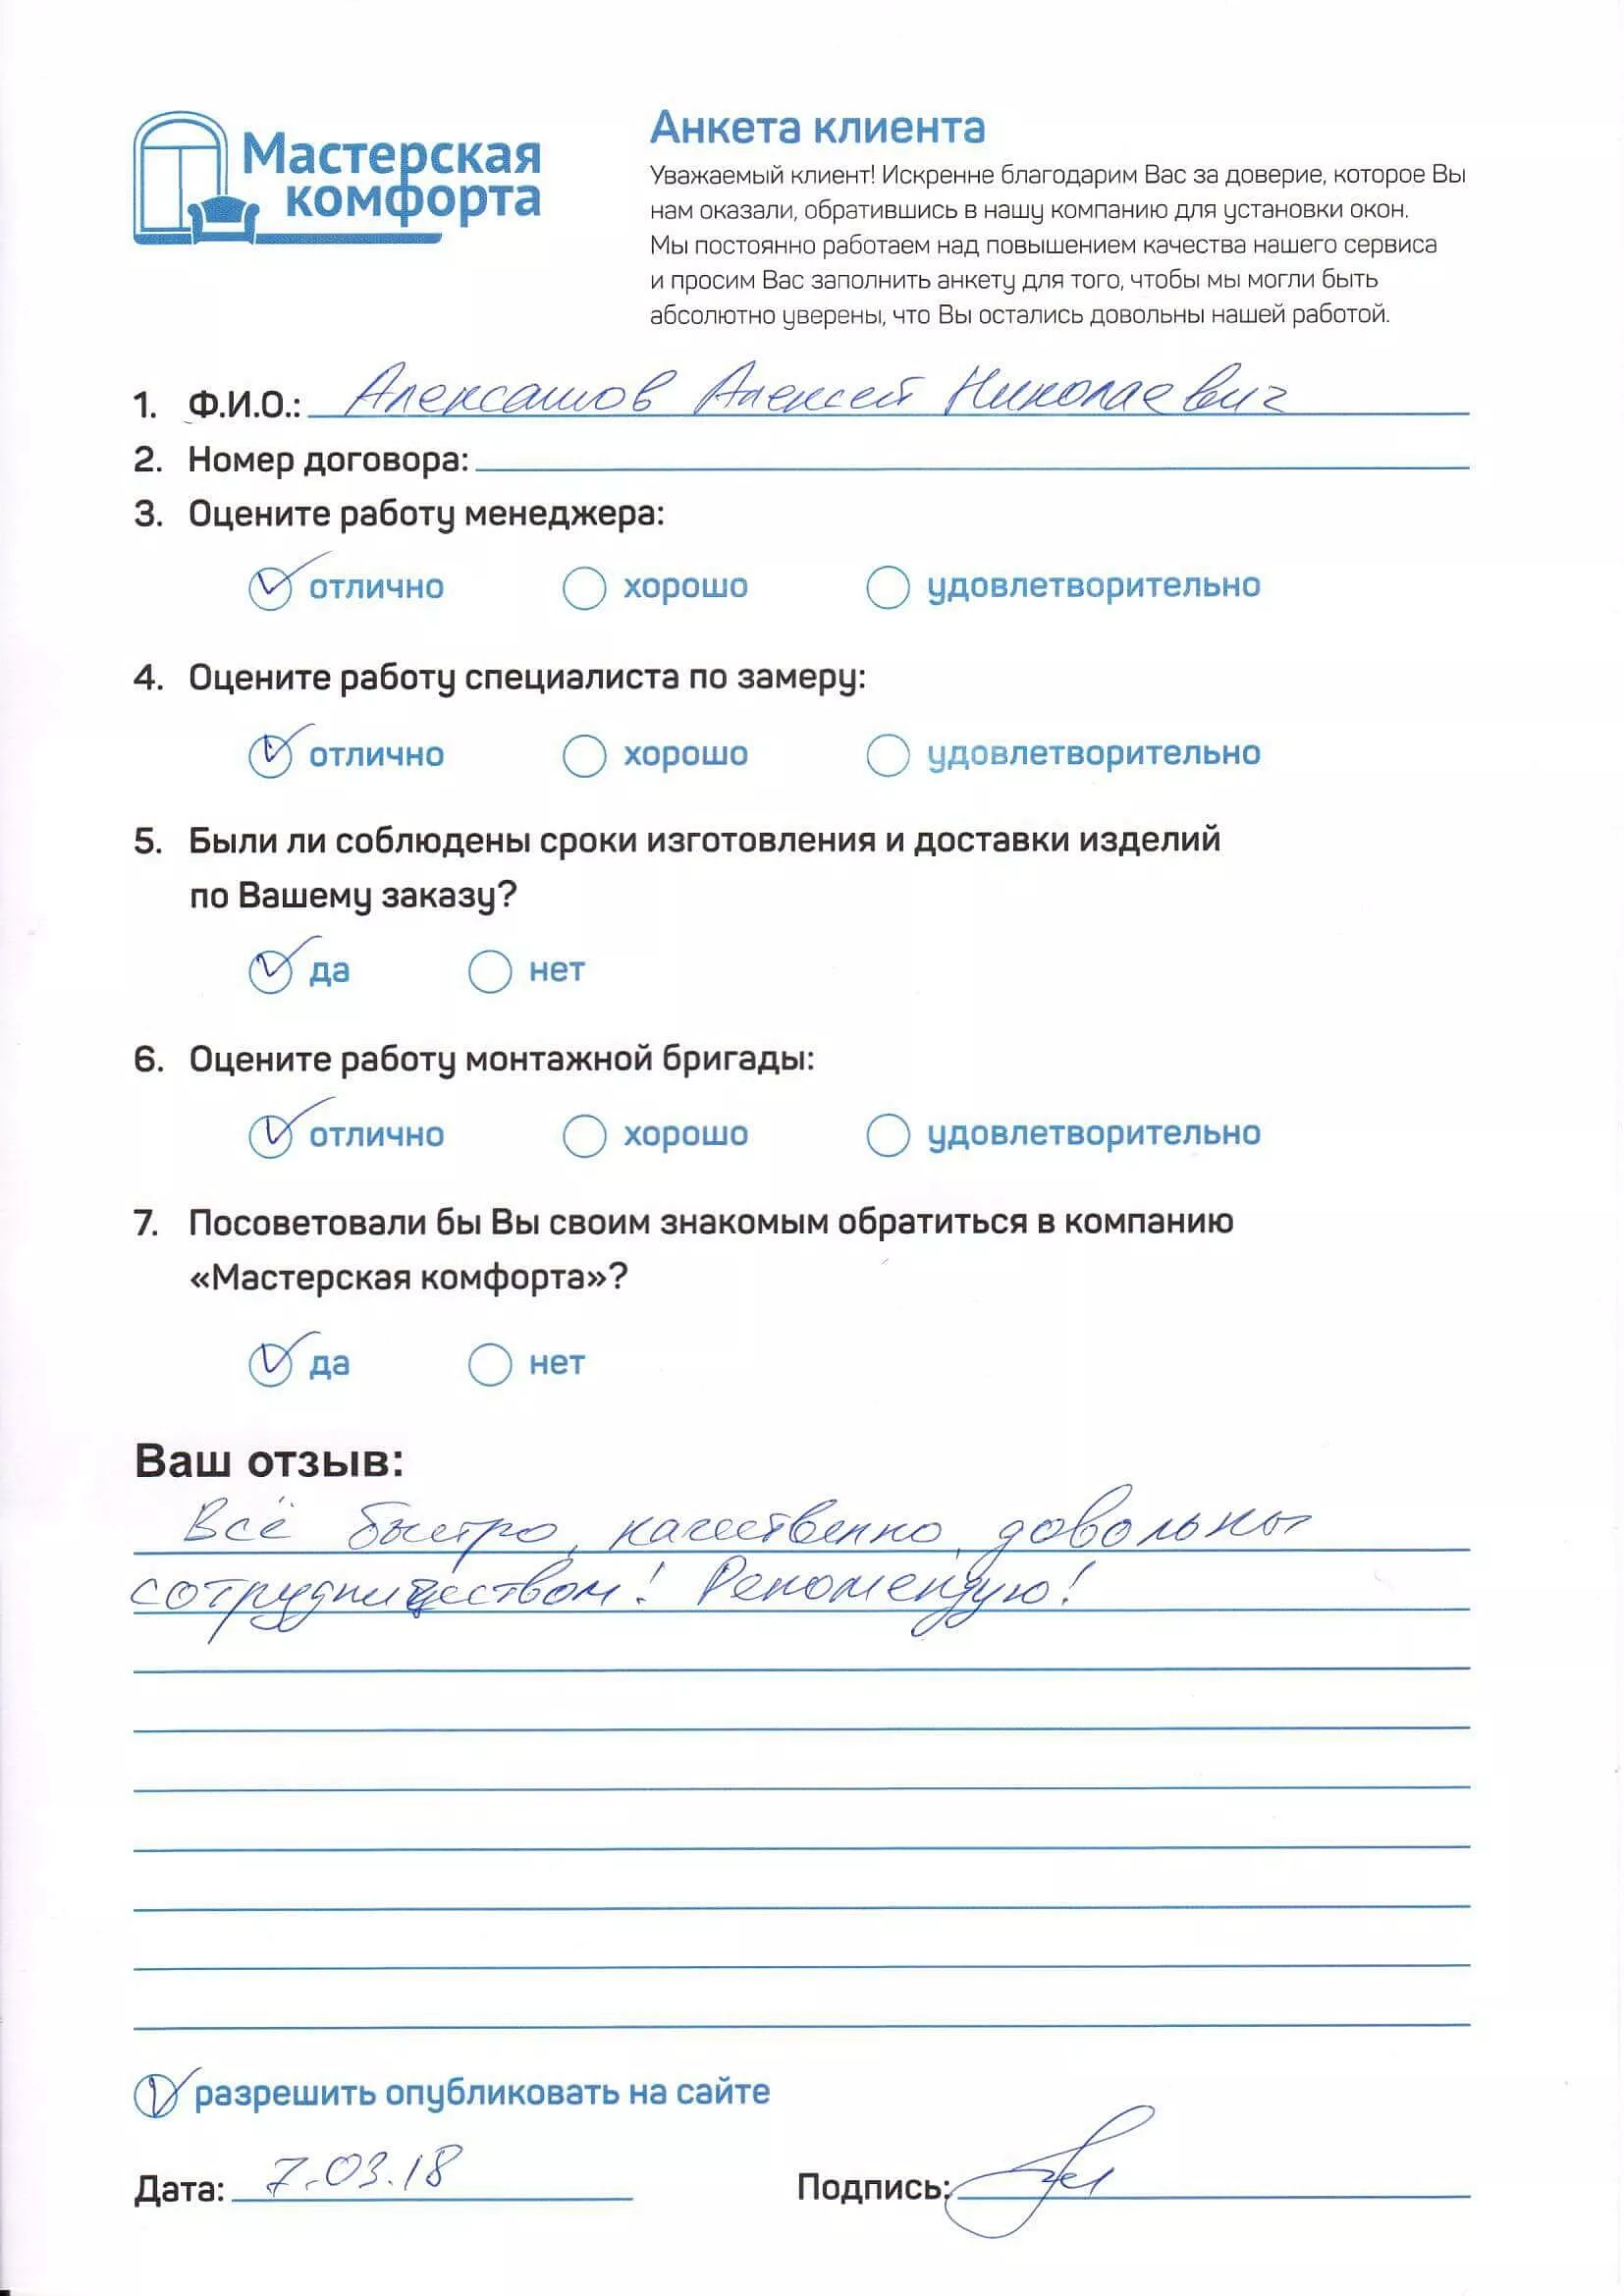 Мастерская
комфорта
Анкета клиента
Уважаемый клиент! Искренне благодарим Вас за доверие, которое Вы
нам оказали, обратившись в нашу компанию для установки окон.
Мы постоянно работаем над повышением качества нашего сервиса
и просим Вас заполнить анкету для того, чтобы мы могли быть
абсолютно уверены, что Вы остались довольны нашей работой.
1. Ф.И.О.: Алексашов Алексей Николаевич
2. Номер договора:
3. Оцените работу менеджера:
отлично хорошо удовлетворительно
4. Оцените работу специалиста по замеру:
отлично хорошо удовлетворительно
5. Были ли соблюдены сроки изготовления и доставки изделий
по Вашему заказу?
да нет
6. Оцените работу монтажной бригады:
отлично хорошо удовлетворительно
7. Посоветовали бы Вы своим знакомым обратиться в компанию
«Мастерская комфорта»?
да нет
Ваш отзыв:
Всё быстро, качественно, довольны
сотрудничеством! Рекомендую!
разрешить опубликовать на сайте
Дата: 7.03.18 Подпись: